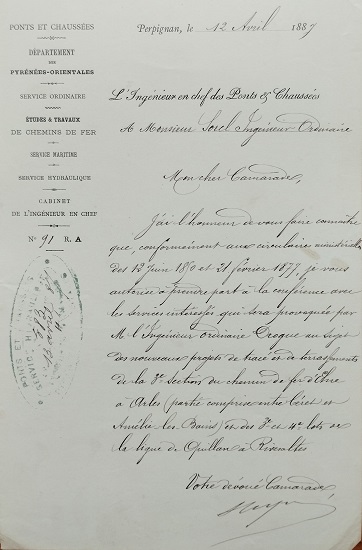 PONTS ET CHAUSSÉES
DÉPARTEMENT
DES
PYRÉNÉES-ORIENTALES
SERVICE ORDINAIRE
ÉTUDES & TRAVAUX
DE CHEMINS DE FER
SERVICE MARITIME
SERVICE HYDRAULIQUE
CABINET
DE L'INGÉNIEUR EN CHEF
N° 91 R.A
Perpignan, le 12 Avril 1887
L'Ingénieur en chef des Ponts & Chaussées
A Monsieur Sorel Ingénieur Ordinaire
Mon cher Camarade,
J'ai l'honneur de vous faire connaître
que, conformément aux circulaires ministérielles
des 12 Juin 1850 et 21 février 1877, je vous
autorise à prendre part à la conférence avec
les Services intéressés qui sera provoquée par
M. l'Ingénieur ordinaire Drogue au sujet
des nouveaux projets de tracé et de terrassements
de la 3e section du chemin de fer d'Elne
à Arles (partie comprise entre Céret et
Amélie les Bains) et des 3e et 4e lots de
la ligne de Quillan à Rivesaltes
Votre dévoué Camarade,